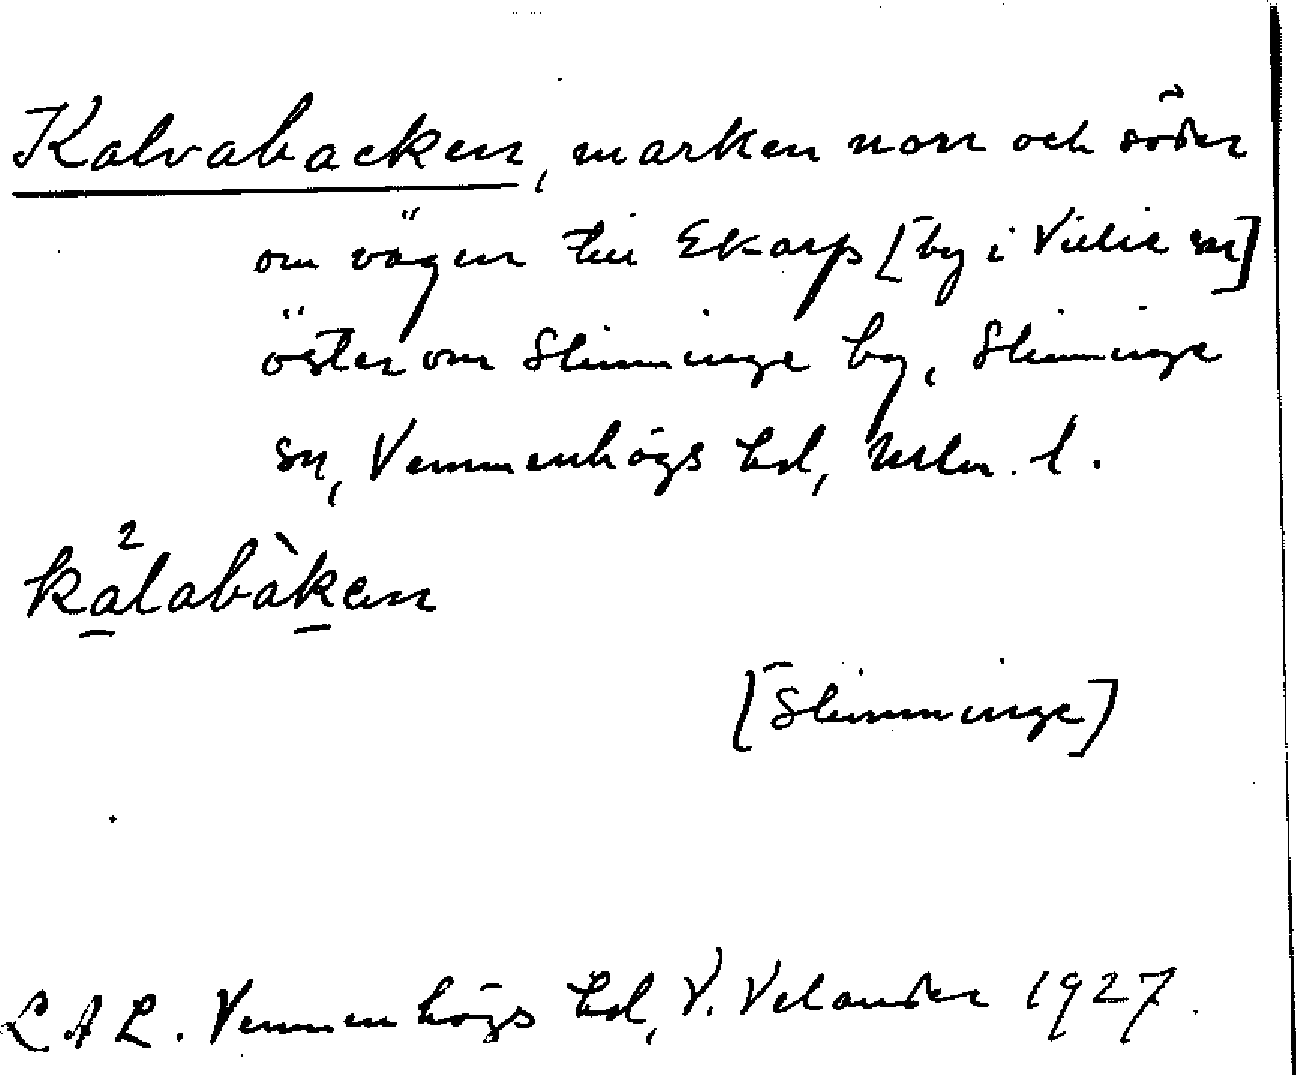 Kalvabacken, marken norr och söder
om vägen till Ekarp [by i Villie sn]
öster om Slimminge by, Slimminge
sn, Vemmenhögs hd, Mlm. l.
ka²labàken
[Slimminge]
LAL. Vemmenhögs hd, V. Velander 1927.